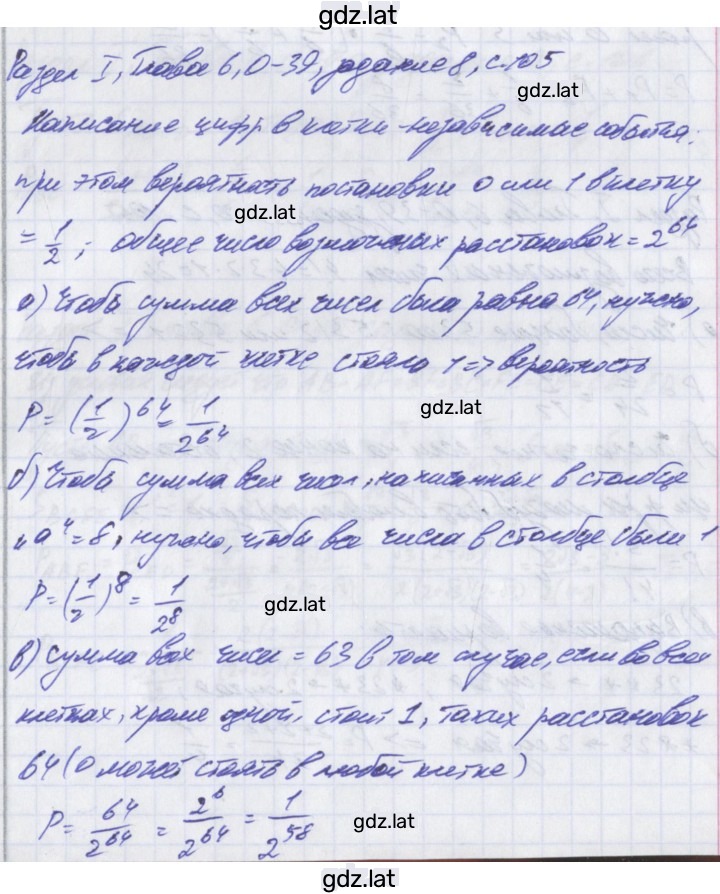 gdz.lat
Раздел I, Глава 6, О-39, задание 8, с.105
gdz.lat
Написание цифр в клетки - независимые события;
при этом вероятность постановки 0 или 1 в клетку
gdz.lat
= 1/2; общее число возможных расстановок = 2^64
а) Чтобы сумма всех чисел была равна 64, нужно,
чтобы в каждой клетке стояло 1 => вероятность
P = (1/2)^64 = 1/2^64
gdz.lat
б) Чтобы сумма всех чисел, написанных в столбце
„a“ = 8, нужно, чтобы все числа в столбце были 1
P = (1/2)^8 = 1/2^8
gdz.lat
в) Сумма всех чисел = 63 в том случае, если во всех
клетках, кроме одной, стоит 1, таких расстановок
64 (0 может стоять в любой клетке)
P = 64/2^64 = 2^6/2^64 = 1/2^58
gdz.lat
gdz.lat